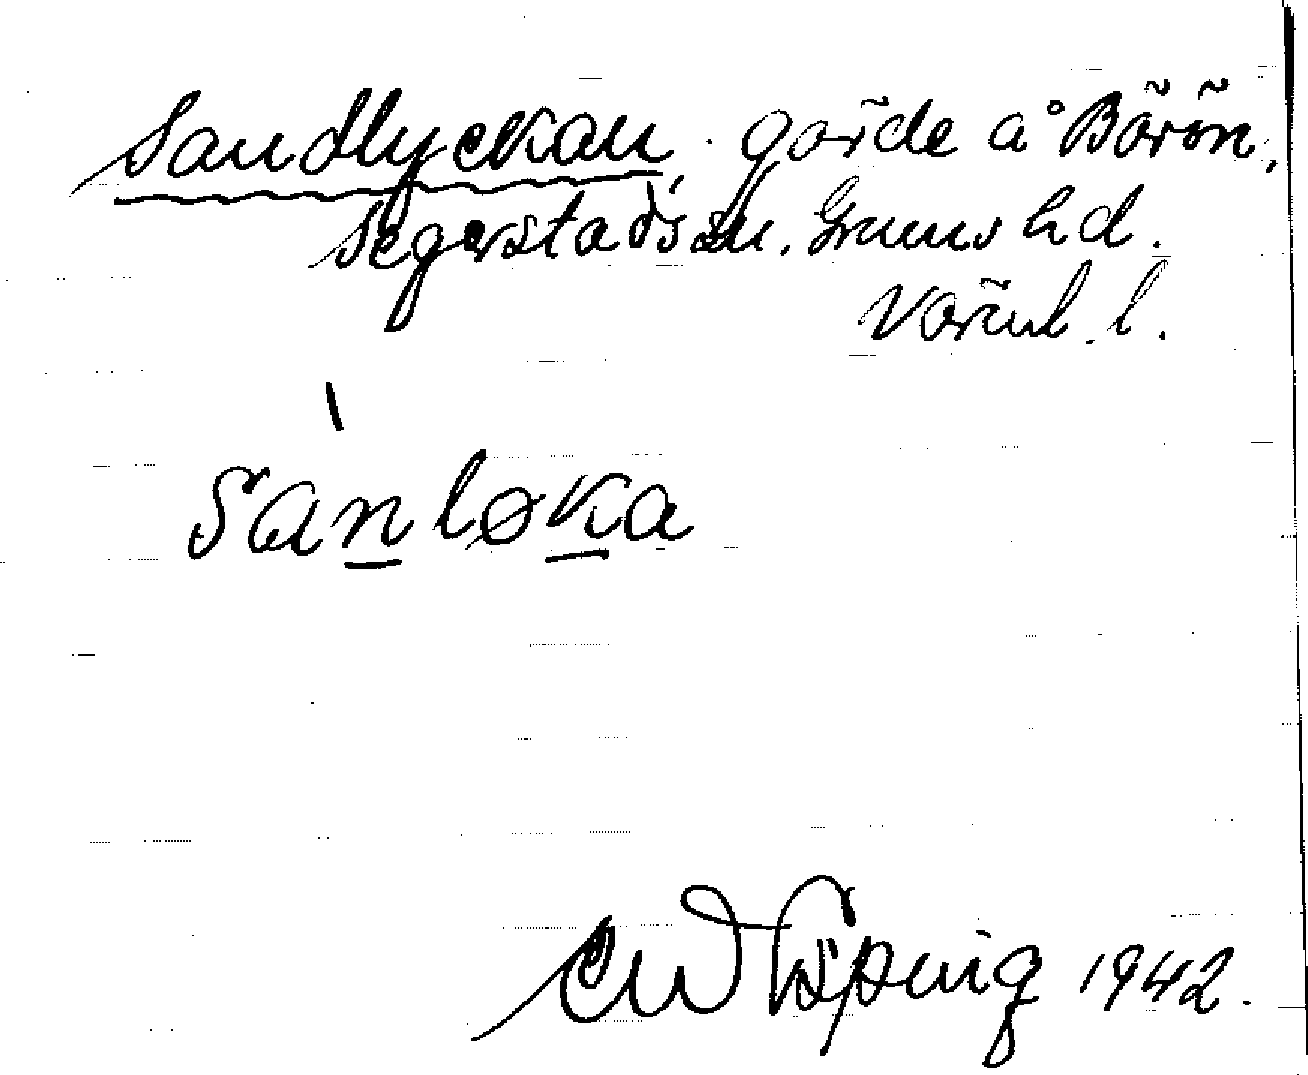 Sandlyckan, gärde å Börön,
Segerstads sn. Grums hd.
Värml. l.
Sanløka
1942.